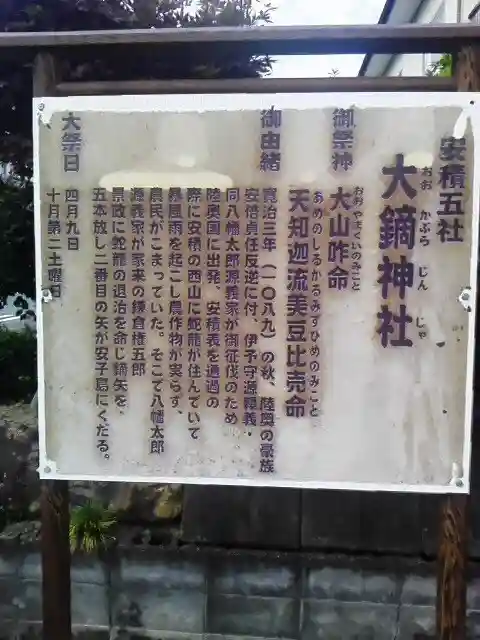 安積五社
大鏑神社
おお かぶら じん じゃ
御祭神
大山咋命
おおやまくいのみこと
天知迦流美豆比売命
あめのしるかるみずひめのみこと
御由緒
寛治三年（一〇八九）の秋、陸奥の豪族
安倍貞任反逆に付、伊予守源頼義・
同八幡太郎源義家が御征伐のため
陸奥国に出発、安積表を通過の
際に安積の西山に蛇龍が住んでいて
暴風雨を起こし農作物が実らず、
農民がこまっていた。そこで八幡太郎
源義家が家来の鎌倉権五郎
景政に蛇龍の退治を命じ鏑矢を、
五本放し二番目の矢が安子島にくだる。
大祭日
四月九日
十月第二土曜日